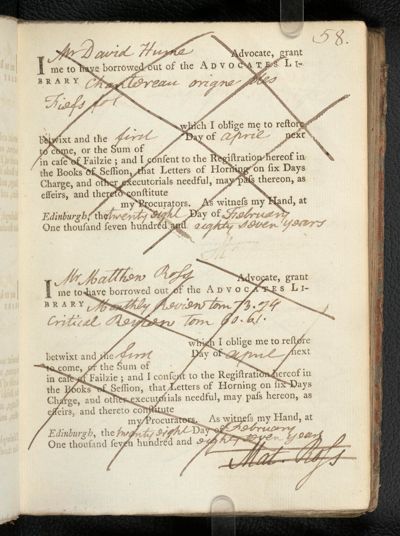 58.
I Mr David Hume Advocate, grant
me to have borrowed out of the ADVOCATES LI-
BRARY Chantereau origne des
Fiefs fol
which I oblige me to restore
betwixt and the first Day of april next
to come, or the Sum of
in case of Failzie; and I consent to the Registration hereof in
the Books of Session, that Letters of Horning on six Days
Charge, and other executorials needful, may pass thereon, as
effeirs, and thereto constitute
my Procurators. As witness my Hand, at
Edinburgh, the twenty eight Day of February
One thousand seven hundred and eighty seven years
I Mr Matthew Ross Advocate, grant
me to have borrowed out of the ADVOCATES LI-
BRARY Monthly Review tom 73. 74
Critical Review tom 60. 61.
which I oblige me to restore
betwixt and the first Day of april next
to come, or the Sum of
in case of Failzie; and I consent to the Registration hereof in
the Books of Session, that Letters of Horning on six Days
Charge, and other executorials needful, may pass hereon, as
effeirs, and thereto constitute
my Procurators. As witness my Hand, at
Edinburgh, the twenty eight Day of February
One thousand seven hundred and eighty seven years
Mat. Ross